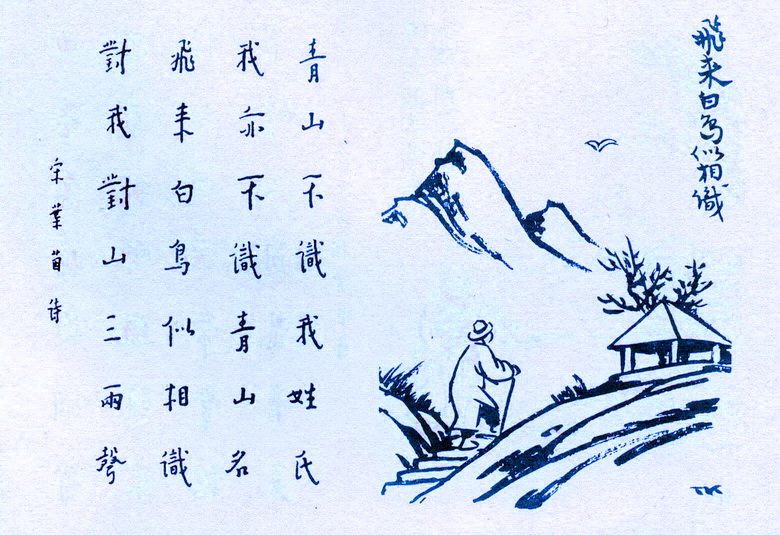 飛来白鳥似相識
TK
青山不識我姓氏
我亦不識青山名
飛来白鳥似相識
對我對山三兩聲
宋葉茵詩